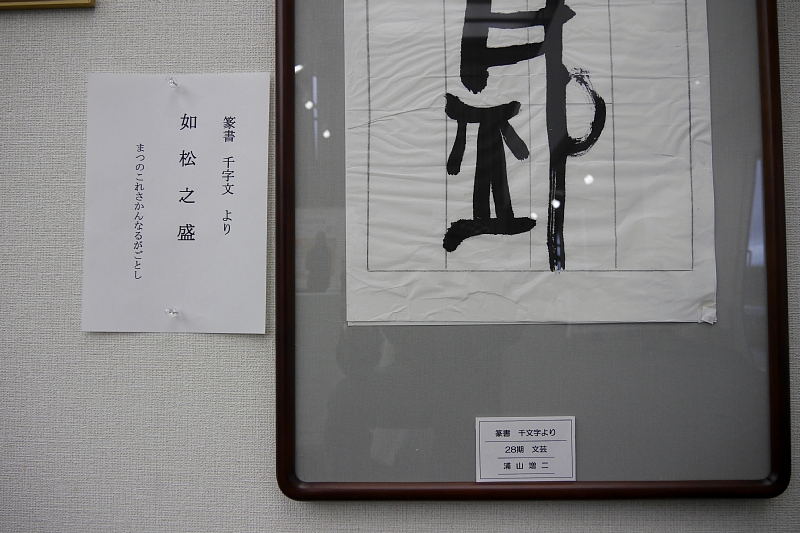 篆書　千字文　より
如松之盛
まつのこれさかんなるがごとし
篆書　千文字より
28期　文芸
浦山 増二